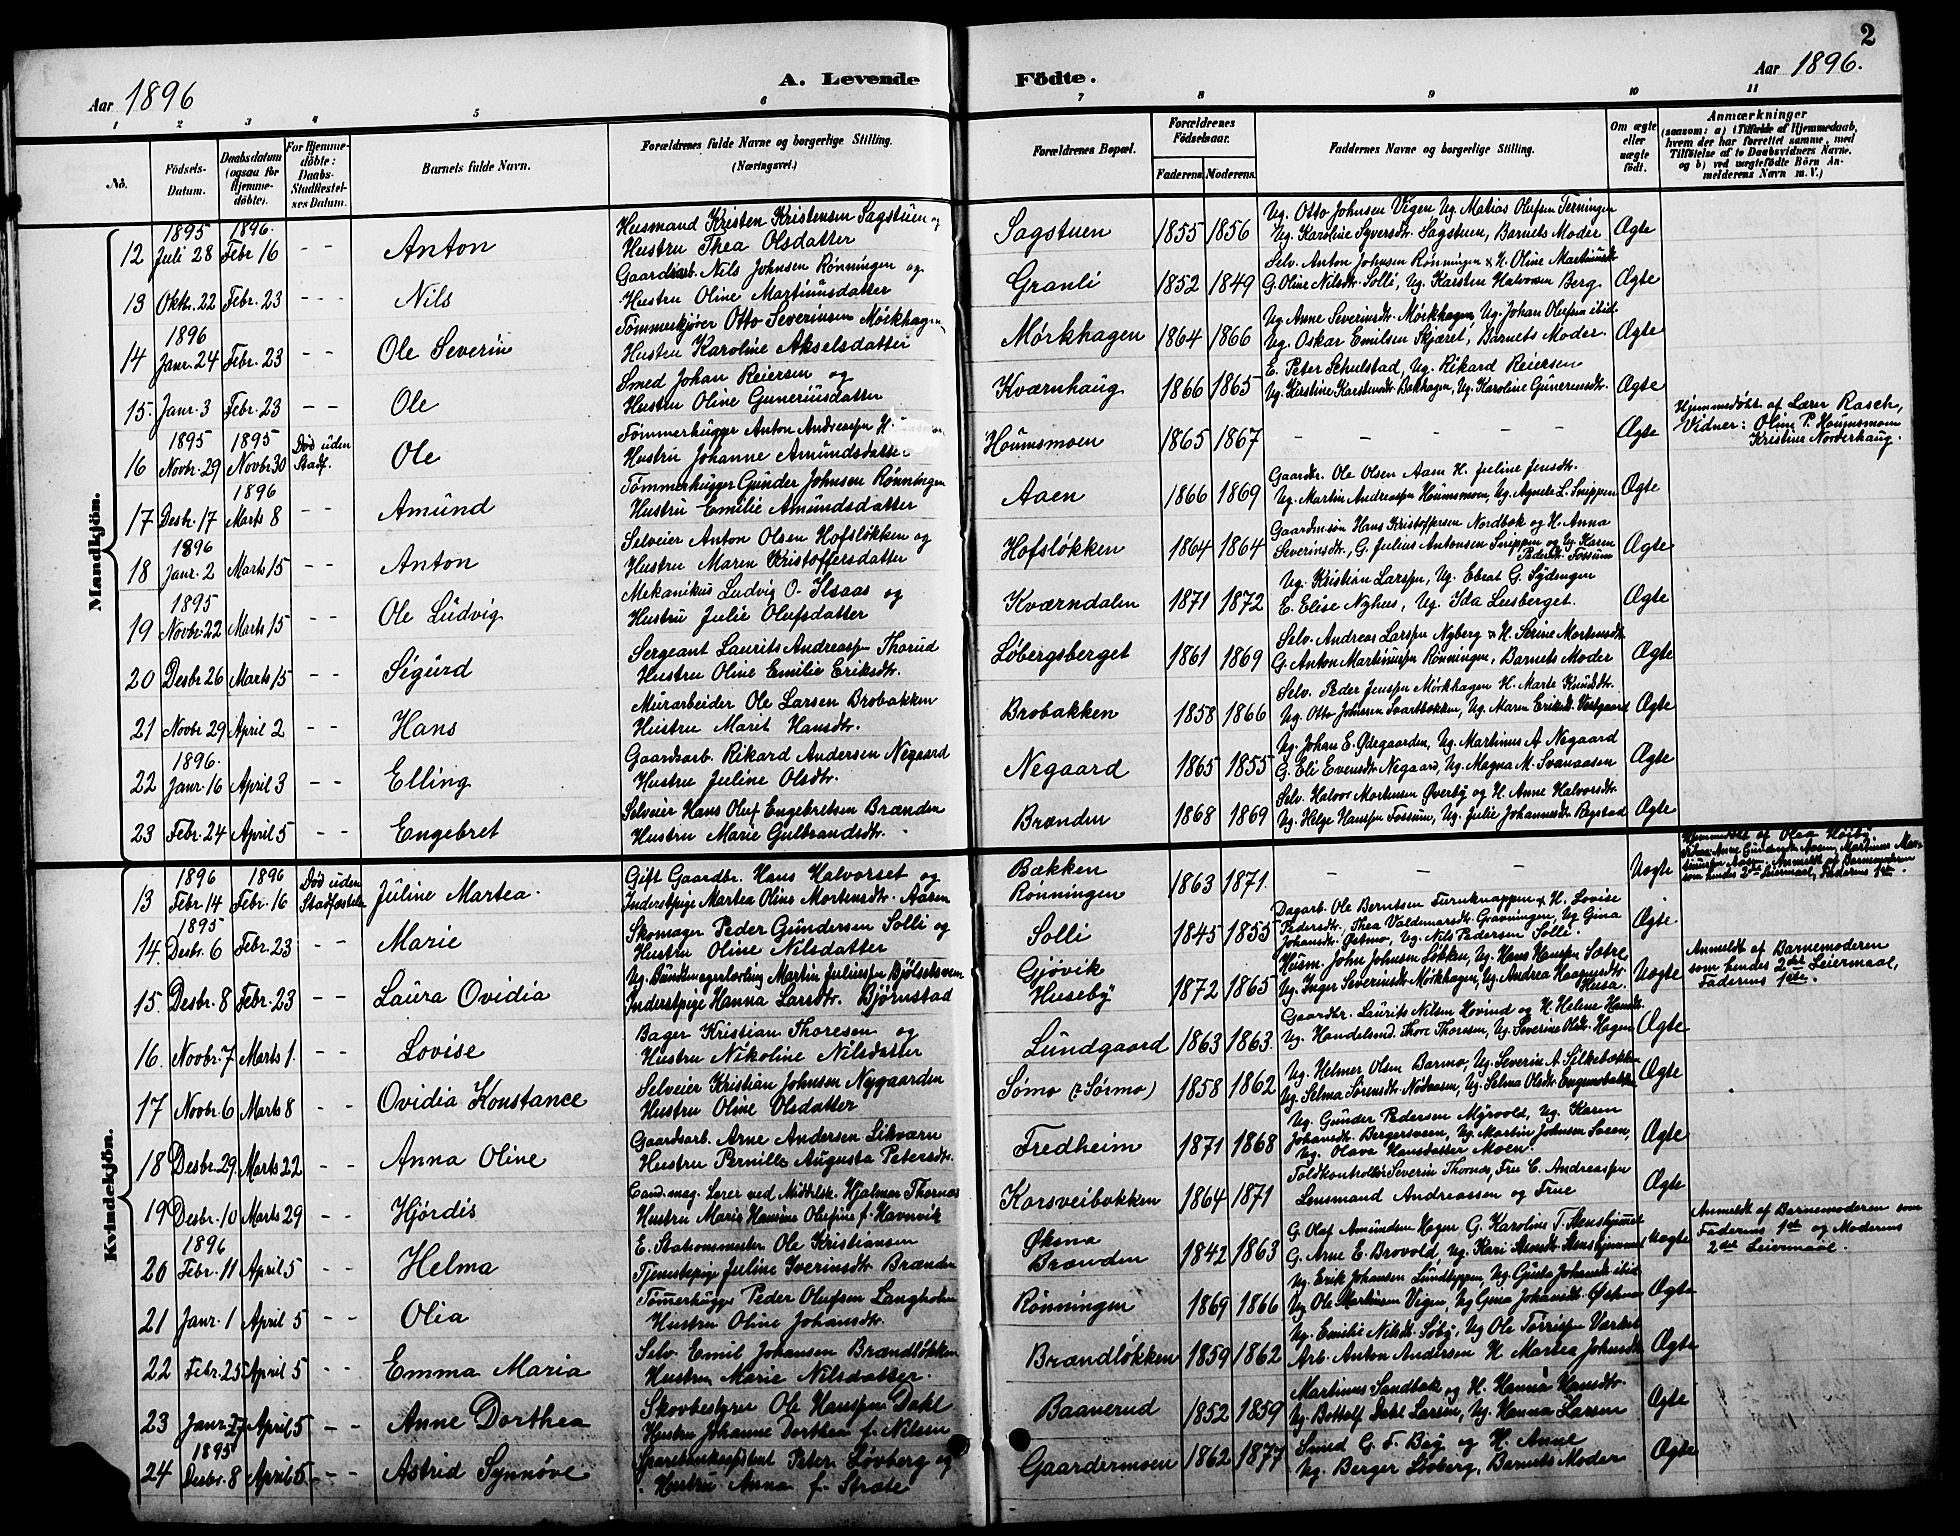 2
Aar 1896
A. Levende Födte.
Aar 1896.
1 2 3 4 5 6 7 8 9 10 11
No.
Födsels-Datum.
Daabsdatum (ogsaa for Hjemmedöbte).
For Hjemmedöbte: Daabs-Stadfæstelses Datum.
Barnets fulde Navn.
Forældrenes fulde Navne og borgerlige Stilling. (Næringsvei.)
Forældrenes Bopæl.
Forældrenes Födselsaar.
Faderens. Moderens.
Faddernes Navne og borgerlige Stilling.
Om ægte eller uægte födt.
Anmærkninger
(saasom: a) i Tilfælde af Hjemmedaab, hvem der har forrettet samme, med Tilföielse af to Daabsvidners Navne, og b) ved uægtefödte Börn Anmelderens Navn m. V.)
Mandkjön.
12 1895 Juli 28 1896. Febr 16 - - Anton
Husmand Kristen Kristensen Sagstuen og
Hustru Thea Olsdatter
Sagstuen 1855 1856
Ug. Otto Johnsen Vigen Ug. Matias Olufsen Terningen
Ug. Karoline Syversdtr. Sagstuen, Barnets Moder Ægte
13 Oktr. 22 Febr. 23 - - - Nils
Gaardsarb. Nils Johnsen Rønningen og
Hustru Oline Martinusdatter
Granli 1852 1849
Selv. Anton Johnsen Rønningen & H. Oline Martinusdt
G. Oline Nilsdtr. Solli, Ug. Karsten Halvorsen Berg Ægte
14 1896 Janr. 24 Febr. 23 - - Ole Severin
Tømmerkjører Otto Severinsen Mørkhagen
Hustru Karoline Akselsdatter
Mørkhagen 1864 1866
Ug Anne Severinsdtr. Mørkhagen, Ug. Johan Olufsen ibid
Ug. Oskar Emilsen Skjæret, Barnets Moder Ægte
15. Janr. 3 Febr. 23 - - Ole
Smed Johan Reiersen og
Hustru Oline Guneriusdatter
Kværnhaug 1866 1865
E. Peter Schulstad, Ug. Rikard Reiersen
Ug. Kirstine Karstensdtr. Bakhagen, Ug. Karoline Guneriusdtr. Ægte
16 1895 Novbr. 29 1895 Novbr 30 Død uden Stadf. Ole
Tømmerhugger Anton Andreassen
Hustru Johanne Amundsdatter
Houmsmoen 1865 1867 - - - - - Ægte
Hjemmedøbt af Lærer Rasch,
Vidner: Oline P. Houmsmoen
Kristine Norderhaug.
17 Desbr. 17 1896 Marts 8 - - Amund
Tømmerhugger Gunder Johnsen Rønningen
Hustru Emilie Amundsdatter
Aaen 1866 1869
Gaardbr. Ole Olsen Aaen H. Juline Jensdtr.
Ug. Martin Andreassen Houmsmoen, Ug. Agnete L. Snippen Ægte
18 1896 Janr. 2 Marts 15 - - Anton
Selveier Anton Olsen Hofsløkken og
Hustru Maren Kristoffersdatter
Hofsløkken 1864 1864
Gaardmsøn Hans Kristoffersen Nordbok og H. Anna
Severinsdtr., G. Julius Antonsen Snippen og Ug. Karen
Pedersdt. Fossum Ægte
19 1895 Novbr. 22 Marts 15 - - Ole Ludvig
Mekanikus Ludvig O. Ilsaas og
Hustru Julie Olufsdatter
Kværndalen 1871 1872
Ug. Kristian Larssen, Ug. Ebrat G. Sydengen
E. Elise Nyhus, Ug. Ida Lusberget. Ægte
20 Desbr 26 Marts 15 - - Sigurd
Sergeant Laurits Andreassen Thorud
Hustru Oline Emilie Eriksdtr.
Løbergsberget 1861 1869
Selv. Andreas Larssen Nyberg & H. Serine Mortensdt
G. Anton Martinussen Rønningen, Barnets Moder Ægte
21 Novbr 29 April 2 - - Hans
Murarbeider Ole Larsen Brobakken
Hustru Marit Hansdtr.
Brobakken 1858 1866
Selv. Peder Jenssen Mørkhagen H. Marte Knudsdtr.
Ug. Otto Johnsen Svartbekken, Ug. Maren Eriksdt. Vestgaard Ægte
22 1896. Janr. 16 April 3 - - Elling
Gaardsarb. Rikard Andersen Negaard
Hustru Juline Olsdtr.
Negaard 1865 1855
Ug. Johan E. Ødegaarden, Ug. Martinus A. Negaard
G. Eli Evensdtr. Negaard, Ug. Magna M. Svanaasen Ægte
23 Febr. 24 April 5 - - Engebret
Selveier Hans Oluf Engebretsen Brænden
Hustru Marie Gulbrandsdtr.
Brænden 1868 1869
Selv. Halvor Mortensen Øverby og H. Anne Halvorsdtr.
Ug. Helge Hanssen Fossum, Ug. Julie Johannesdt. Rogstad Ægte
Kvindekjön.
13 1896 Febr 14 1896 Febr 16 Død uden Stadfæstelse Juline Martea.
Gift Gaardbr. Hans Halvorset og
Inderstpige Martea Oline Mortensdtr. Aasen
Bakken
Rønningen 1863 1871. - - Uægte
Hjemmedøbt af Olea Høiby.
som hendes 2det Leiermaal, Faderens 1ste.
14. 1895 Desbr. 6 Febr. 23 - - Marie
Skomager Peder Gundersen Solli og
Hustru Oline Nilsdatter
Solli 1845 1855
Dagarb. Ole Berntsen Furuknappen & H. Lovise
Pedersdt. Thea Valdemarsdtr. Gravningen, Ug Gina
Johansdt. Østmo, Ug. Nils Pedersen Solli. Ægte
15. Desbr. 8 Febr. 23 - - Laura Ovidia
Ug. Bundmagerlærling Martin Juliussen Bjølsetsveen
Inderstpige Hanna Larsdtr. Bjørnstad
Gjøvik
Huseby 1872 1865
Husm. John Johnsen Løkken, Ug. Hans Hanssen Sætre
Ug. Inger Severinsdt. Mørkhagen, Ug. Andrea Haagensdt.
Husa. Uægte
Anmeldt af Barnemoderen
som hendes 2det Leiermaal,
Faderens 1ste.
16. Novbr. 7 Marts 1. - - Lovise
Bager Kristian Thoresen og
Hustru Nikoline Nilsdatter
Lundgaard 1863 1863.
Gaardbr. Laurits Nilsen Hovind og H. Helene Hansdt.
Ug. Handelsmd. Thore Thoresen, Ug. Severine Olsdt. Hagen Ægte
17 Novbr 6 Marts 8 - - Ovidia Konstance
Selveier Kristian Johnsen Nygaarden
Hustru Oline Olsdatter
Sømo (? Sørmo) 1858 1862
Ug. Helmer Olsen Barmo, Ug. Severin A. Silkebækken
Ug. Selma Sørensdt. Nødaasen, Ug. Selma Olsdt. Engenebakken Ægte
18 Desbr. 29 Marts 22 - - Anna Oline
Gaardsarb. Arne Andersen Likværn
Hustru Pernille Augusta Petersdt.
Fredheim 1871 1868
Ug. Gunder Pedersen Myrvold, Ug. Karen
Johansdt. Bergersveen, Ug. Martin Johnsen Soeen,
Ug. Olava Hansdatter Moen. Ægte
19 Desbr. 10 Marts 29 - - Hjørdis
Cand. mag. Lærer ved Middelsk. Hjalmar Thornæs
Hustru Marie Hansine Olufine f. Havnvik
Korsveibakken 1864 1871
Toldkontrollør Severin Thornæs, Fru C. Andreassen
Lensmand Andreassen og Frue Ægte
20 1896 Febr. 11 April 5 - - Helma
E. Stationsmester Ole Kristiansen
Tjenestepige Juline Iverinsdtr. Brænden
Øksna
Brænden 1842 1863
G. Olaf Amunden Hagen G. Karoline T. Stenshjemmet
G. Arne E. Brovold, Ug. Kari Stensdt. Stenshjemmet Uægte
Anmeldt af Barnemoderen som
Faderens 1ste og Moderens
2det Leiermaal.
21 Janr. 1 April 5 - - Olea
Tømmerhugger Peder Olufsen Langholen
Hustru Oline Johansdtr.
Rønningen 1869 1866
Ug. Erik Johansen Lundteppen, Ug. Gusta Johansdt. ibid
Ug Ole Martinsen Vigen, Ug Gina Johansdt. Østmo Ægte
22 Febr. 25 April 5 - - Emma Maria
Selv. Emil Johansen Brændløkken
Hustru Marie Nilsdatter.
Brændløkken 1859 1862
Ug. Emilie Nilsdt. Søby, Ug Ole Torrissen Varket
Arb. Anton Andersen H. Martea Johnsdt Ægte
23 Janr. 27 April 5 - - Anne Dorthea
Skovbestyrer Ole Hanssen Dahl
Hustru Johanne Dorthea f. Nilsen
Baanerud 1852 1859
Martinus Sandbak og H. Hanna Hansdtr.
Ug. Bottolf Dahl Larsen, Ug. Hanna Larsen Ægte
24 1895 Desbr. 8 April 5 - - Astrid Synnøve
Sparebankassistent Peter Løvberg og
Hustru Anna f. Stræte
Gaardermoen 1862 1877
Smed G. F. Bøy og H. Anne
Ug. Berger Løvberg, Barnets Moder Ægte